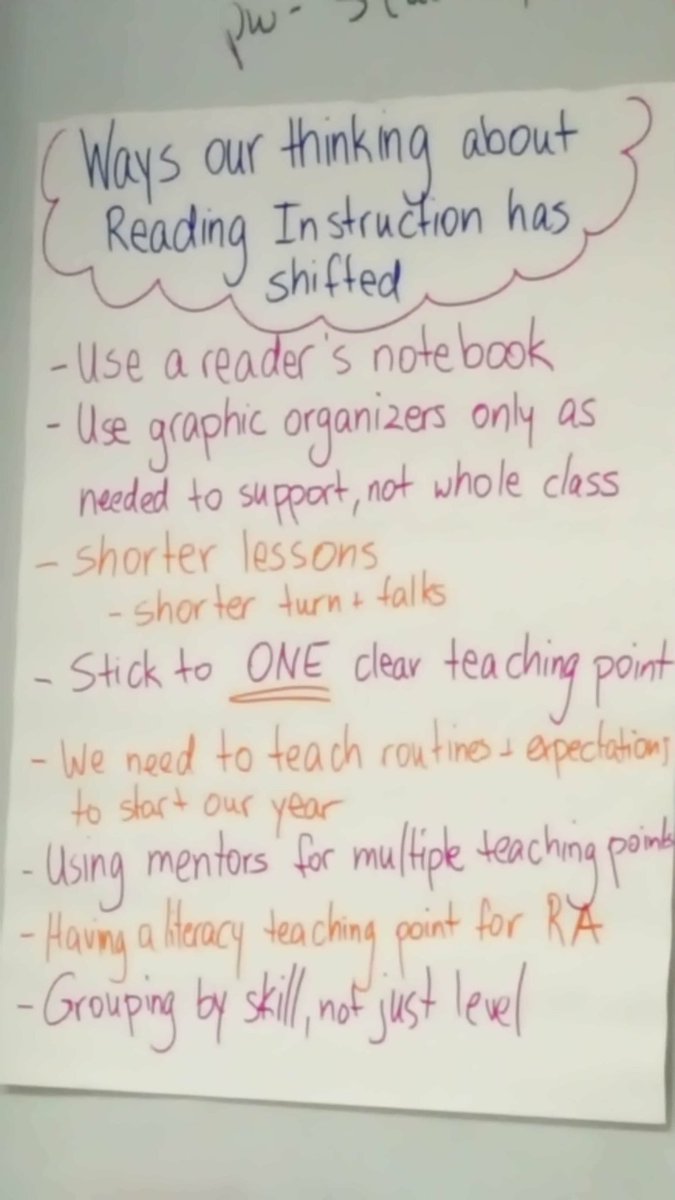 pw-
Ways our thinking about
Reading Instruction has
shifted
- Use a reader's notebook
- Use graphic organizers only as
needed to support, not whole class
- shorter lessons
- shorter turn + talks
- Stick to ONE clear teaching point
- We need to teach routines + expectations
to start our year
- Using mentors for multiple teaching points
- Having a literacy teaching point for RA
- Grouping by skill, not just level